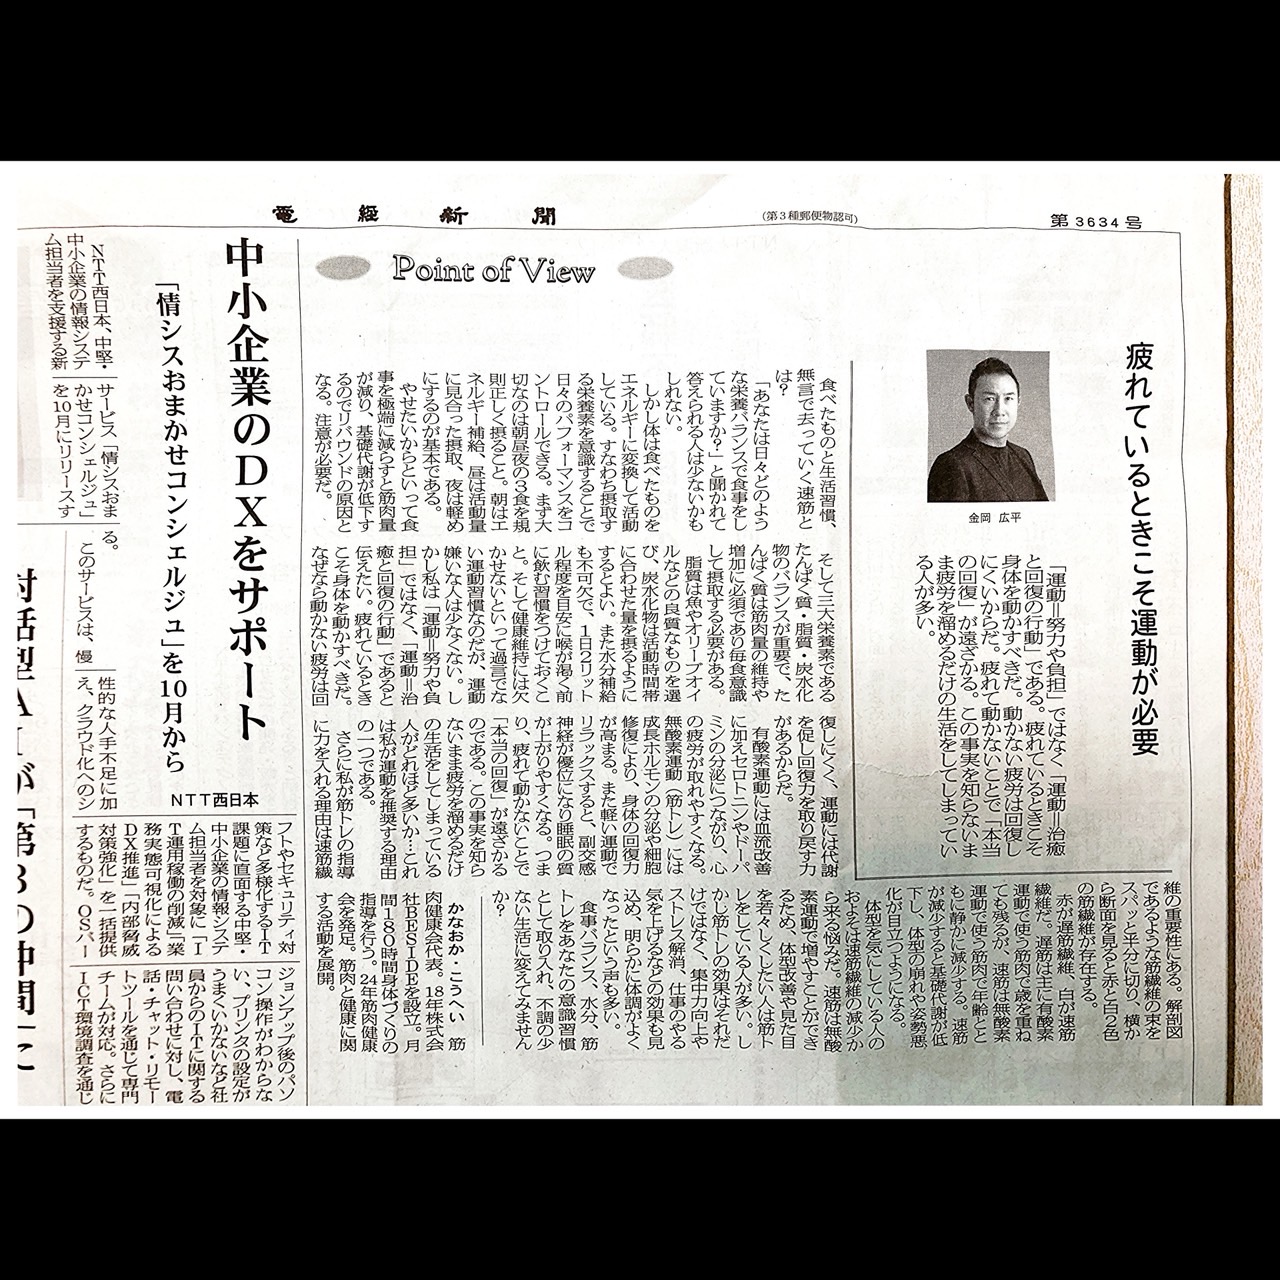 電経新聞
(第3種郵便物認可)
第3634号
Point of View
疲れているときこそ運動が必要
金岡 広平
「運動=努力や負担」ではなく「運動=治癒
と回復の行動」である。疲れているときこそ
身体を動かすべきだ。動かない疲労は回復し
にくいからだ。疲れて動かないことで「本当
の回復」が遠ざかる。この事実を知らないま
ま疲労を溜めるだけの生活をしてしまってい
る人が多い。
食べたものと生活習慣、
無言で去っていく速筋と
は?
「あなたは日々どのよう
な栄養バランスで食事をし
ていますか?」と聞かれて
答えられる人は少ないかも
しれない。
しかし体は食べたものを
エネルギーに変換して活動
している。すなわち摂取す
る栄養素を意識することで
日々のパフォーマンスをコ
ントロールできる。まず大
切なのは朝昼夜の3食を規
則正しく摂ること。朝はエ
ネルギー補給、昼は活動量
に見合った摂取、夜は軽め
にするのが基本である。
やせたいからといって食
事を極端に減らすと筋肉量
が減り、基礎代謝が低下す
るのでリバウンドの原因と
なる。注意が必要だ。
そして三大栄養素である
たんぱく質・脂質・炭水化
物のバランスが重要で、た
んぱく質は筋肉量の維持や
増加に必須であり毎食意識
して摂取する必要がある。
脂質は魚やオリーブオイ
ルなどの良質なものを選
び、炭水化物は活動時間帯
に合わせた量を摂るように
するとよい。また水分補給
も不可欠で、1日2リット
ル程度を目安に喉が渇く前
に飲む習慣をつけておくこ
と。そして健康維持には欠
かせないといって過言でな
い運動習慣なのだが、運動
嫌いな人は少なくない。し
かし私は「運動=努力や負
担」ではなく、「運動=治
癒と回復の行動」であると
伝えたい。疲れているとき
こそ身体を動かすべきだ。
なぜなら動かない疲労は回
復しにくく、運動には代謝
を促し回復力を取り戻す力
があるからだ。
有酸素運動には血流改善
に加えセロトニンやドーパ
ミンの分泌につながり、心
の疲労が取れやすくなる。
無酸素運動(筋トレ)には
成長ホルモンの分泌や細胞
修復により、身体の回復力
が高まる。また軽い運動で
リラックスすると、副交感
神経が優位になり睡眠の質
が上がりやすくなる。つま
り、疲れて動かないことで
「本当の回復」が遠ざかる
のである。この事実を知ら
ないまま疲労を溜めるだけ
の生活をしてしまっている
人がどれほど多いか…これ
は私が運動を推奨する理由
の一つである。
さらに私が筋トレの指導
に力を入れる理由は速筋繊
維の重要性にある。解剖図
であるような筋繊維の束を
スパッと半分に切り、横か
ら断面を見ると赤と白の2色
の筋繊維が存在する。
赤が遅筋繊維、白が速筋
繊維だ。遅筋は主に有酸素
運動で使う筋肉で歳を重ね
ても残るが、速筋は無酸素
運動で使う筋肉で年齢とと
もに静かに減少する。速筋
が減少すると基礎代謝が低
下し、体型の崩れや姿勢悪
化が目立つようになる。
体型を気にしている人の
およそは速筋繊維の減少か
ら来る悩みだ。速筋は無酸
素運動で増やすことができ
るため、体型改善や見た目
を若々しくしたい人は筋ト
レをしている人が多い。し
かし筋トレの効果はそれだ
けではなく、集中力向上や
ストレス解消、仕事のやる
気を上げるなどの効果も見
込め、明らかに体調がよく
なったという声も多い。
食事バランス、水分、筋
トレをあなたの意識習慣
として取り入れ、不調の少
ない生活に変えてみません
か?
かなおか・こうへい 筋
肉健康会代表。18年株式会
社BESIDEを設立。月
間180時間身体づくりの
指導を行う。24年筋肉健康
会を発足。筋肉と健康に関
する活動を展開。
中小企業のDXをサポート
「情シスおまかせコンシェルジュ」を10月から
NTT西日本
NTT西日本、中堅・
中小企業の情報システ
ム担当者を支援する新
サービス「情シスおま
かせコンシェルジュ」
を10月にリリースす
る。
このサービスは、慢
性的な人手不足に加
え、クラウド化へのシ
フトやセキュリティ対
策など多様化するIT
課題に直面する中堅・
中小企業の情報システ
ム担当者を対象に「I
T運用稼働の削減」「業
務実態可視化による
DX推進」「内部脅威
対策強化」を一括提供
するものだ。OSバー
ジョンアップ後のパソ
コン操作がわからな
い、プリンタの設定が
うまくいかないなど社
員からのITに関する
問い合わせに対し、電
話・チャット・リモー
トツールを通じて専門
チームが対応。さらに
ICT環境調査を通じ
対話型AIが「第3の仲間」に